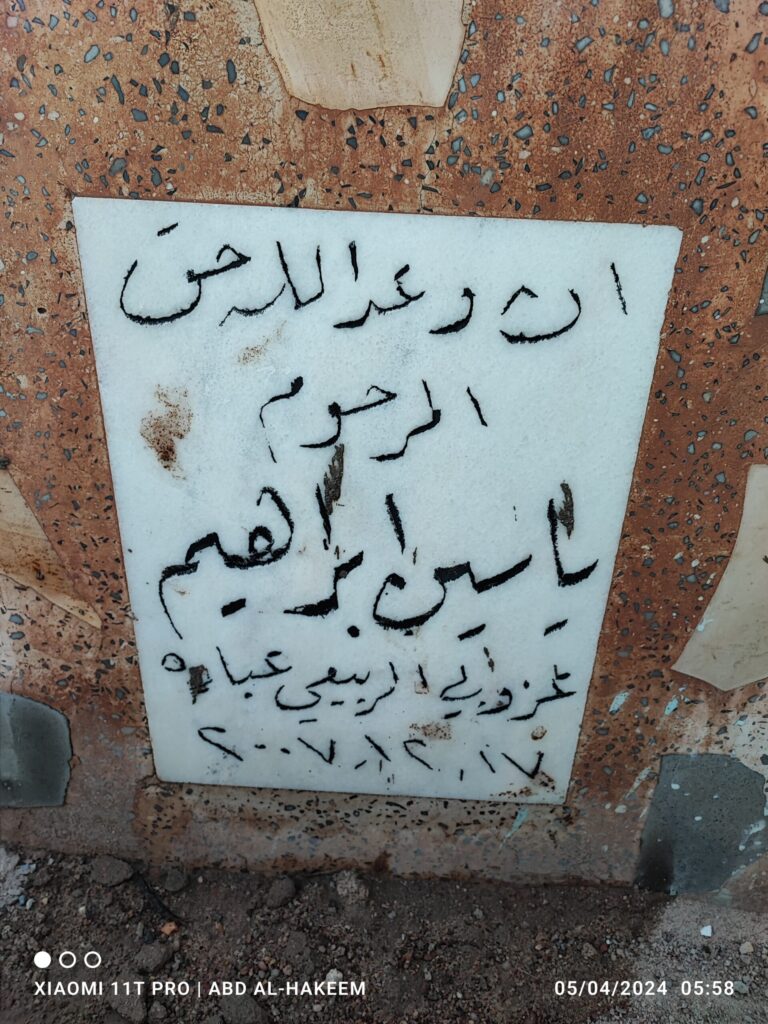 ان وعد الله حق
المرحوم
ياسين ابراهيم
الربيعي
٢٠٠٧.١٢.١٧
XIAOMI 11T PRO | ABD AL-HAKEEM
05/04/2024 05:58